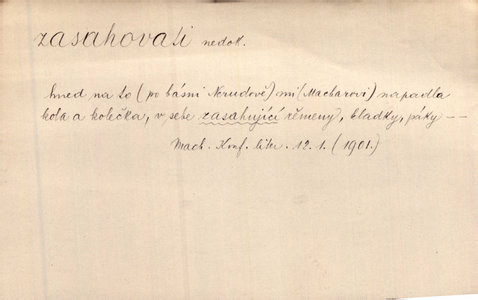 zasahovati nedok.
hned na to (po básni Nerudově) mi (Macharovi) napadla
kola a kolečka, v sebe zasahující řěmeny, kladky, páky --
Mach. Konf. liter. 12. 1. (1901.)